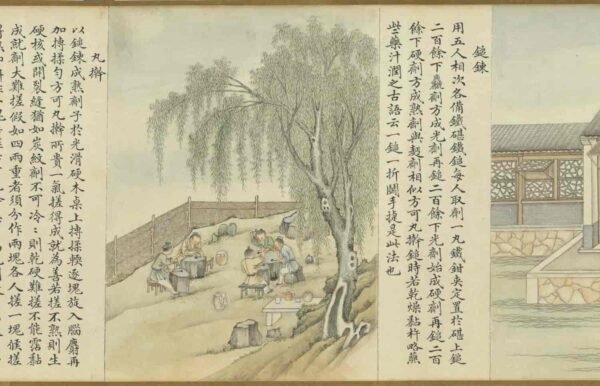 鎚鍊
用五人相次各備鐵碪鐵鎚每人取劑一丸鐵鉗夾定置於碪上鎚
二百餘下麤劑方成光劑再鎚二百餘下光劑始成硬劑再鎚二百
餘下硬劑方成熟劑與麪劑相似方可丸擀鎚時若乾燥黏杵略蘸
些藥汁潤之古語云一鎚一折鬬手捷是此法也
丸擀
以鎚鍊成熟劑子於光滑硬木桌上摶揉輭逐塊旋入腦麝再
加摶揉勻方可丸擀所貴一氣搓得成就為善若搓不熟則生
硬核或開裂縫猶如炭紋劑不可冷〻則乾硬難搓不能霑黏
成就劑大難搓假如四兩重者須分作兩塊各人搓一塊候搓